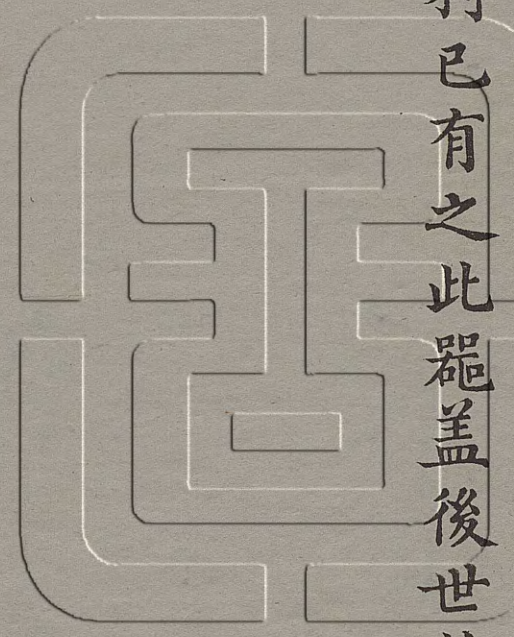 已有之此噐盖後世